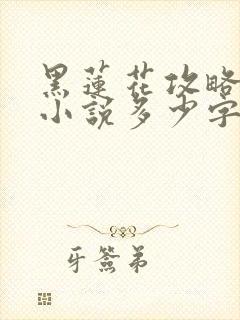 黑蓮花攻略
小說多少字
牙簽弟